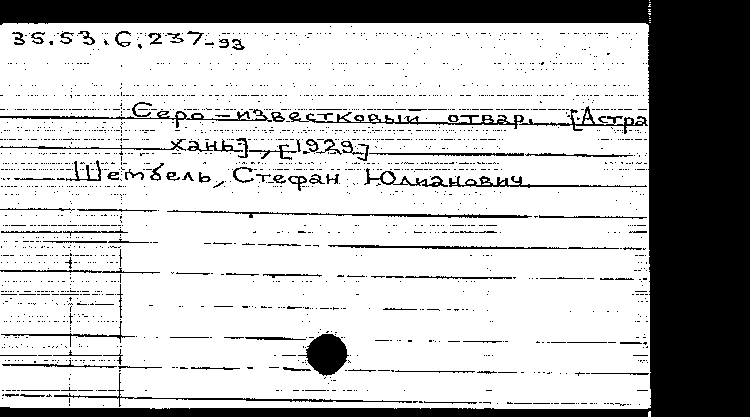 35.53.6.237-93
Серо-известковый отвар. [Астра
хань], [1929]
Штембель, Стефан Юлианович.